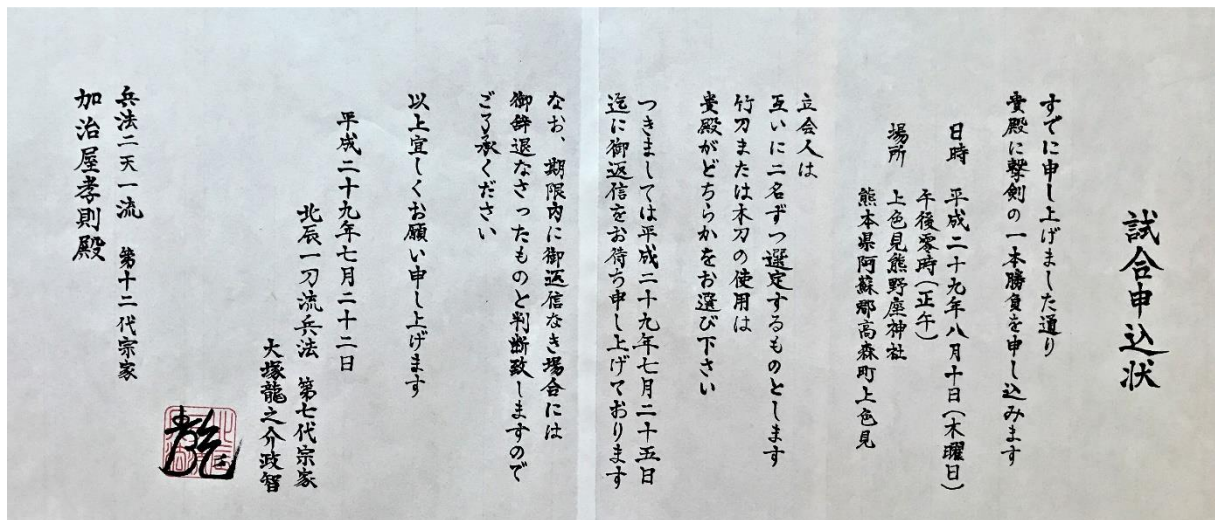 試合申込状
すでに申し上げました通り
貴殿に撃剣の一本勝負を申し込みます
日時 平成二十九年八月十日(木曜日)
午後零時(正午)
場所 上色見熊野座神社
熊本県阿蘇郡高森町上色見
立会人は
互いに二名ずつ選定するものとします
竹刀または木刀の使用は
貴殿がどちらかをお選び下さい
つきましては平成二十九年七月二十五日
迄に御返信をお待ち申し上げております
なお、期限内に御返信なき場合には
御辞退なさったものと判断致しますので
ご了承ください
以上宜しくお願い申し上げます
平成二十九年七月二十二日
北辰一刀流兵法 第七代宗家
大塚龍之介政智
兵法二天一流 第十二代宗家
加治屋孝則殿